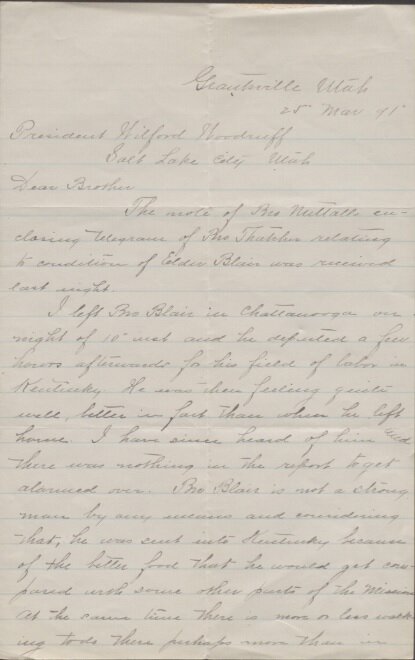 Grantsville Utah
25 Mar 95
President Wilford Woodruff
Salt Lake City Utah
Dear Brother
The note of Bro Nuttall en-
closing telegram of Bro Thatcher relating
to condition of Elder Blair was received
last night.
I left Bro Blair in Chattanooga on
night of 10" inst and he departed a few
hours afterwards for his field of labor in
Kentucky. He was then feeling quite
well, better in fact than when he left
home. I have since heard of him and
there was nothing in the report to get
alarmed over. Bro Blair is not a strong
man by any means and considering
that, he was sent into Kentucky because
of the better food that he would get com-
pared with some other parts of the Mission
At the same time there is more or less walk-
ing to do there perhaps more than in